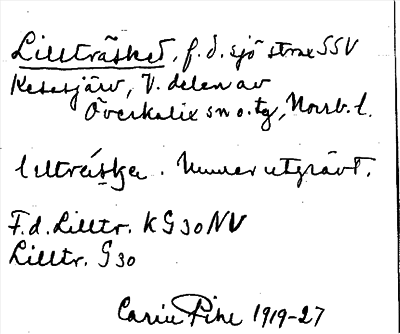 Lillträsket, f.d. sjö strax SSV
Kesasjärv, V. delen av
Överkalix sn o. tg, Norrb. l.
lıltrǽska. Numer utgrävt.
F.d. Lilltr. KG30NV
Lilltr. G30
Carin Pihl 1919-27